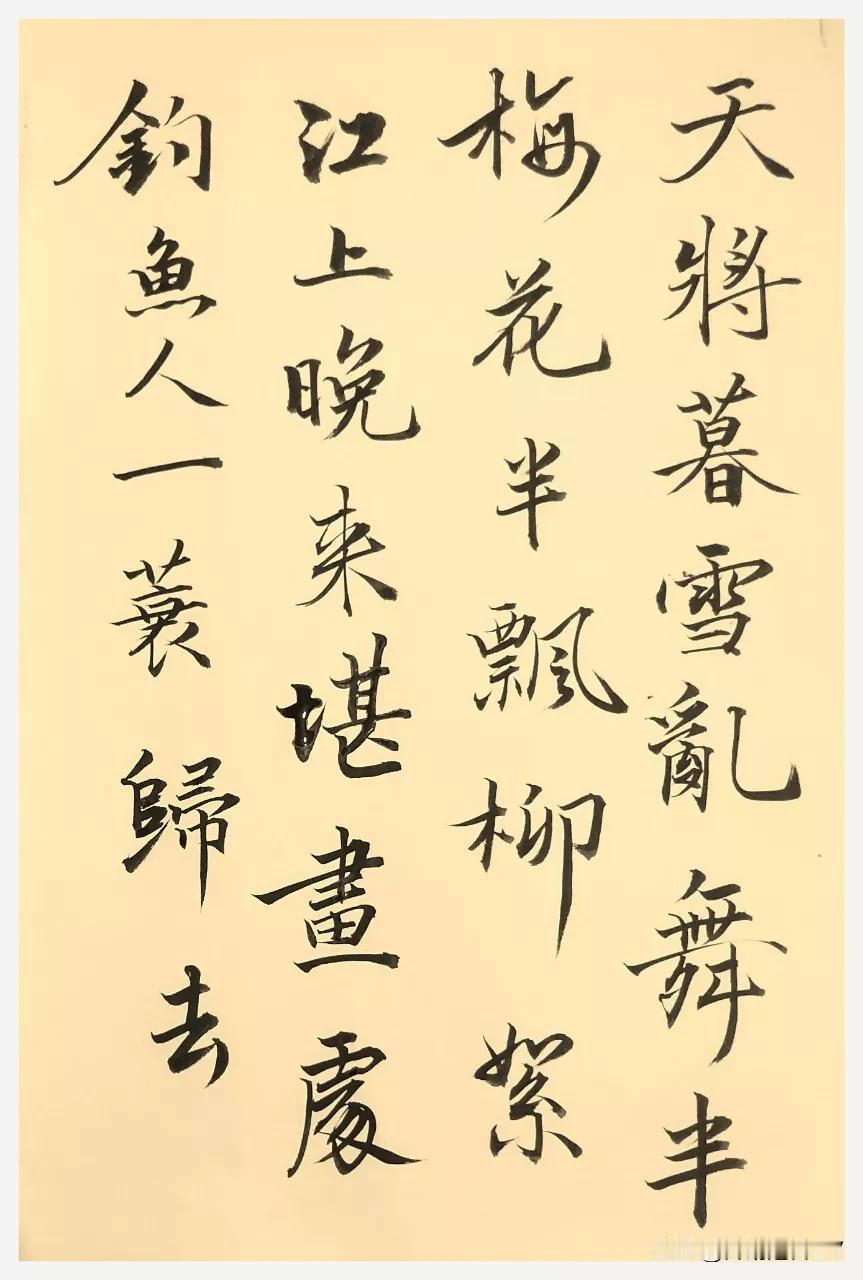 天將暮雪亂舞半
梅花半飄柳絮
江上晚来堪畫處
釣魚人一蓑歸去